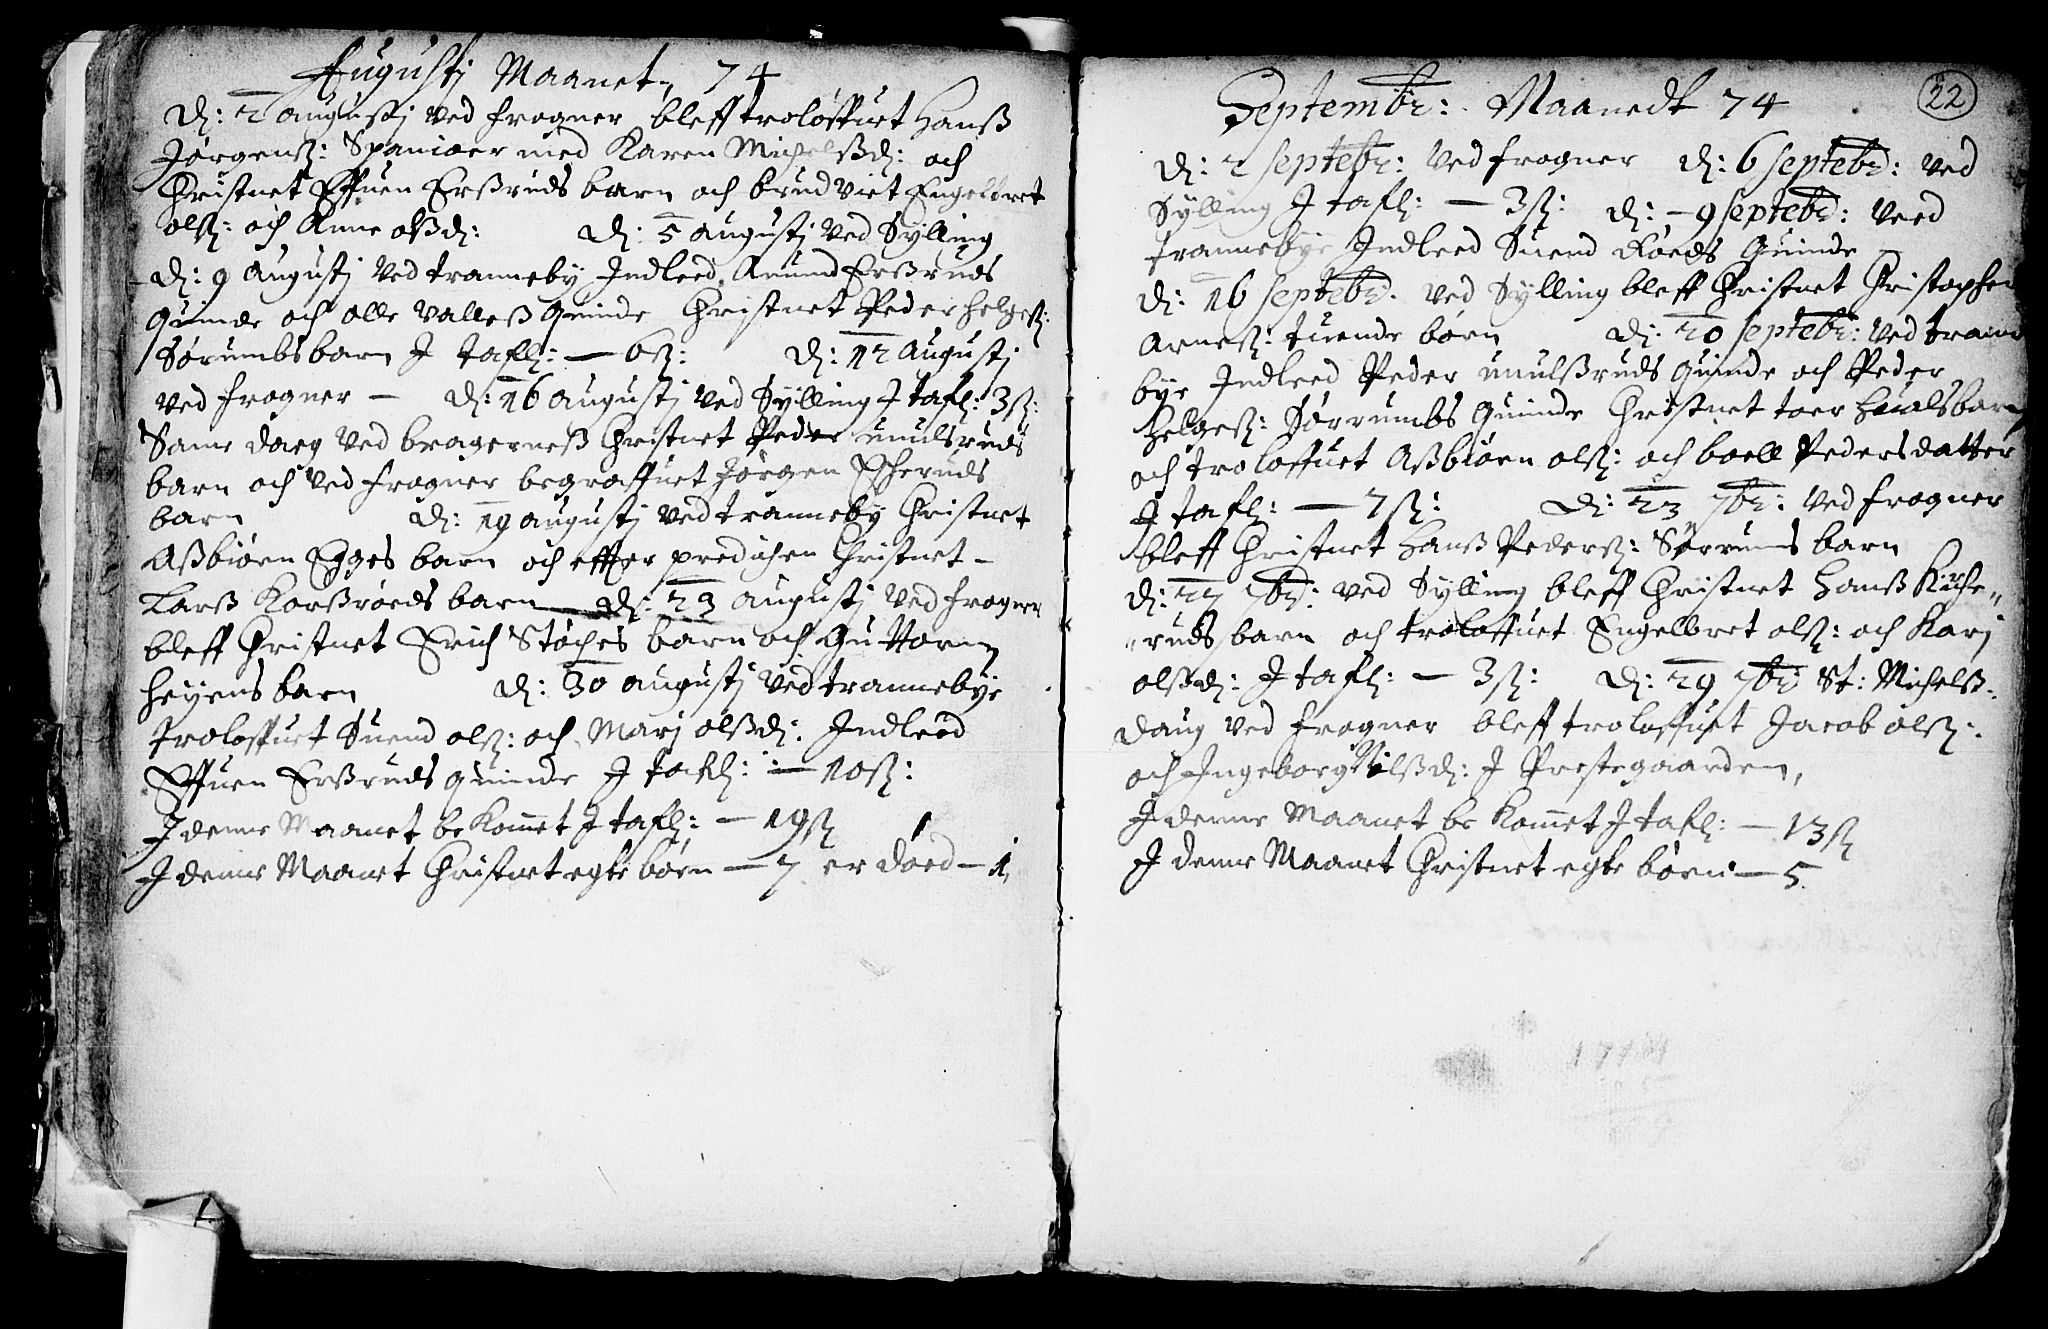 Augustj Maanet, 74
D: 2 augustj ved frogner bleff troloffuet Hanß
Jørgenß: Spanioer med Karen Michelßd: och
Christnet Effuen Erßruds barn och brud viet Engelbret
olß: och Anne olßd: D: 5 augustj ved Sylling
D: 9 Augustj ved tranneby Indleed Anund Erßruds
Quinde och olle Valleß Quinde Christnet Peder helgeß:
Sørumbs barn J tafl: — 6ß: D: 12 Augustj
ved frogner — D: 16 augustj ved Sylling J tafl: 3ß:
Same daeg ved bragerneß Christnet Peder uuulsruds
barn och ved frogner begraffuet Jørgen
barn D: 19 augustj ved tranneby Christnet
Aßbiørn Egges barn och effter predichen Christnet -
Larß Korßrøeds barn — D: 23 augustj ved frogner
bleff Christnet Erich Støches barn och Guttorm
heyens barn D: 30 augustj ved trannebye
troloffuet Suend olß: och Marj olßd: Indleed
Effuen Erßruds quinde J tafl: — 10ß:
J denne Maanet bekomet J tafl: — 19ß
J denne Maanet Christnet egte børn — 7 er doed — 1,
22
Septembr: Maanedt 74
D: 2 septebr: ved frogner D: 6 septebr: ved
Sylling J tafl: — 3ß: D: — 9 septebr: veed
trannebye Indleed Suend Røeds Quinde
D: 16 septebr. ved Sylling bleff Christnet Christopher
Arneß: tuende børn D: 20 septebr: ved tranne
bye Indleed Peder uuulßruds Quinde och Peder
Helgeß: Sørrumbs Quinde Christnet toer barn
och troloffuet Aßbiørn olß: och boell Pedersdatter
J tafl: — 7ß: D: 23 7br: ved frogner
bleff Christnet Hanß Pederß: Sørrums barn
D: 27 7br: ved Sylling bleff Christnet Hanß Kirche„
„ruds barn och troloffuet Engelbret olß: och Karj
olßd: J tafl: — 3ß: D: 29 7br St: Michelß:
daug ved frogner bleff troloffuet Jacob olß:
och Ingeborg Nilßd: J Prestegaarden,
J denne Maanet be Komet J tafl: — 13ß
J denne Maanet Christnet egte børn — 5.